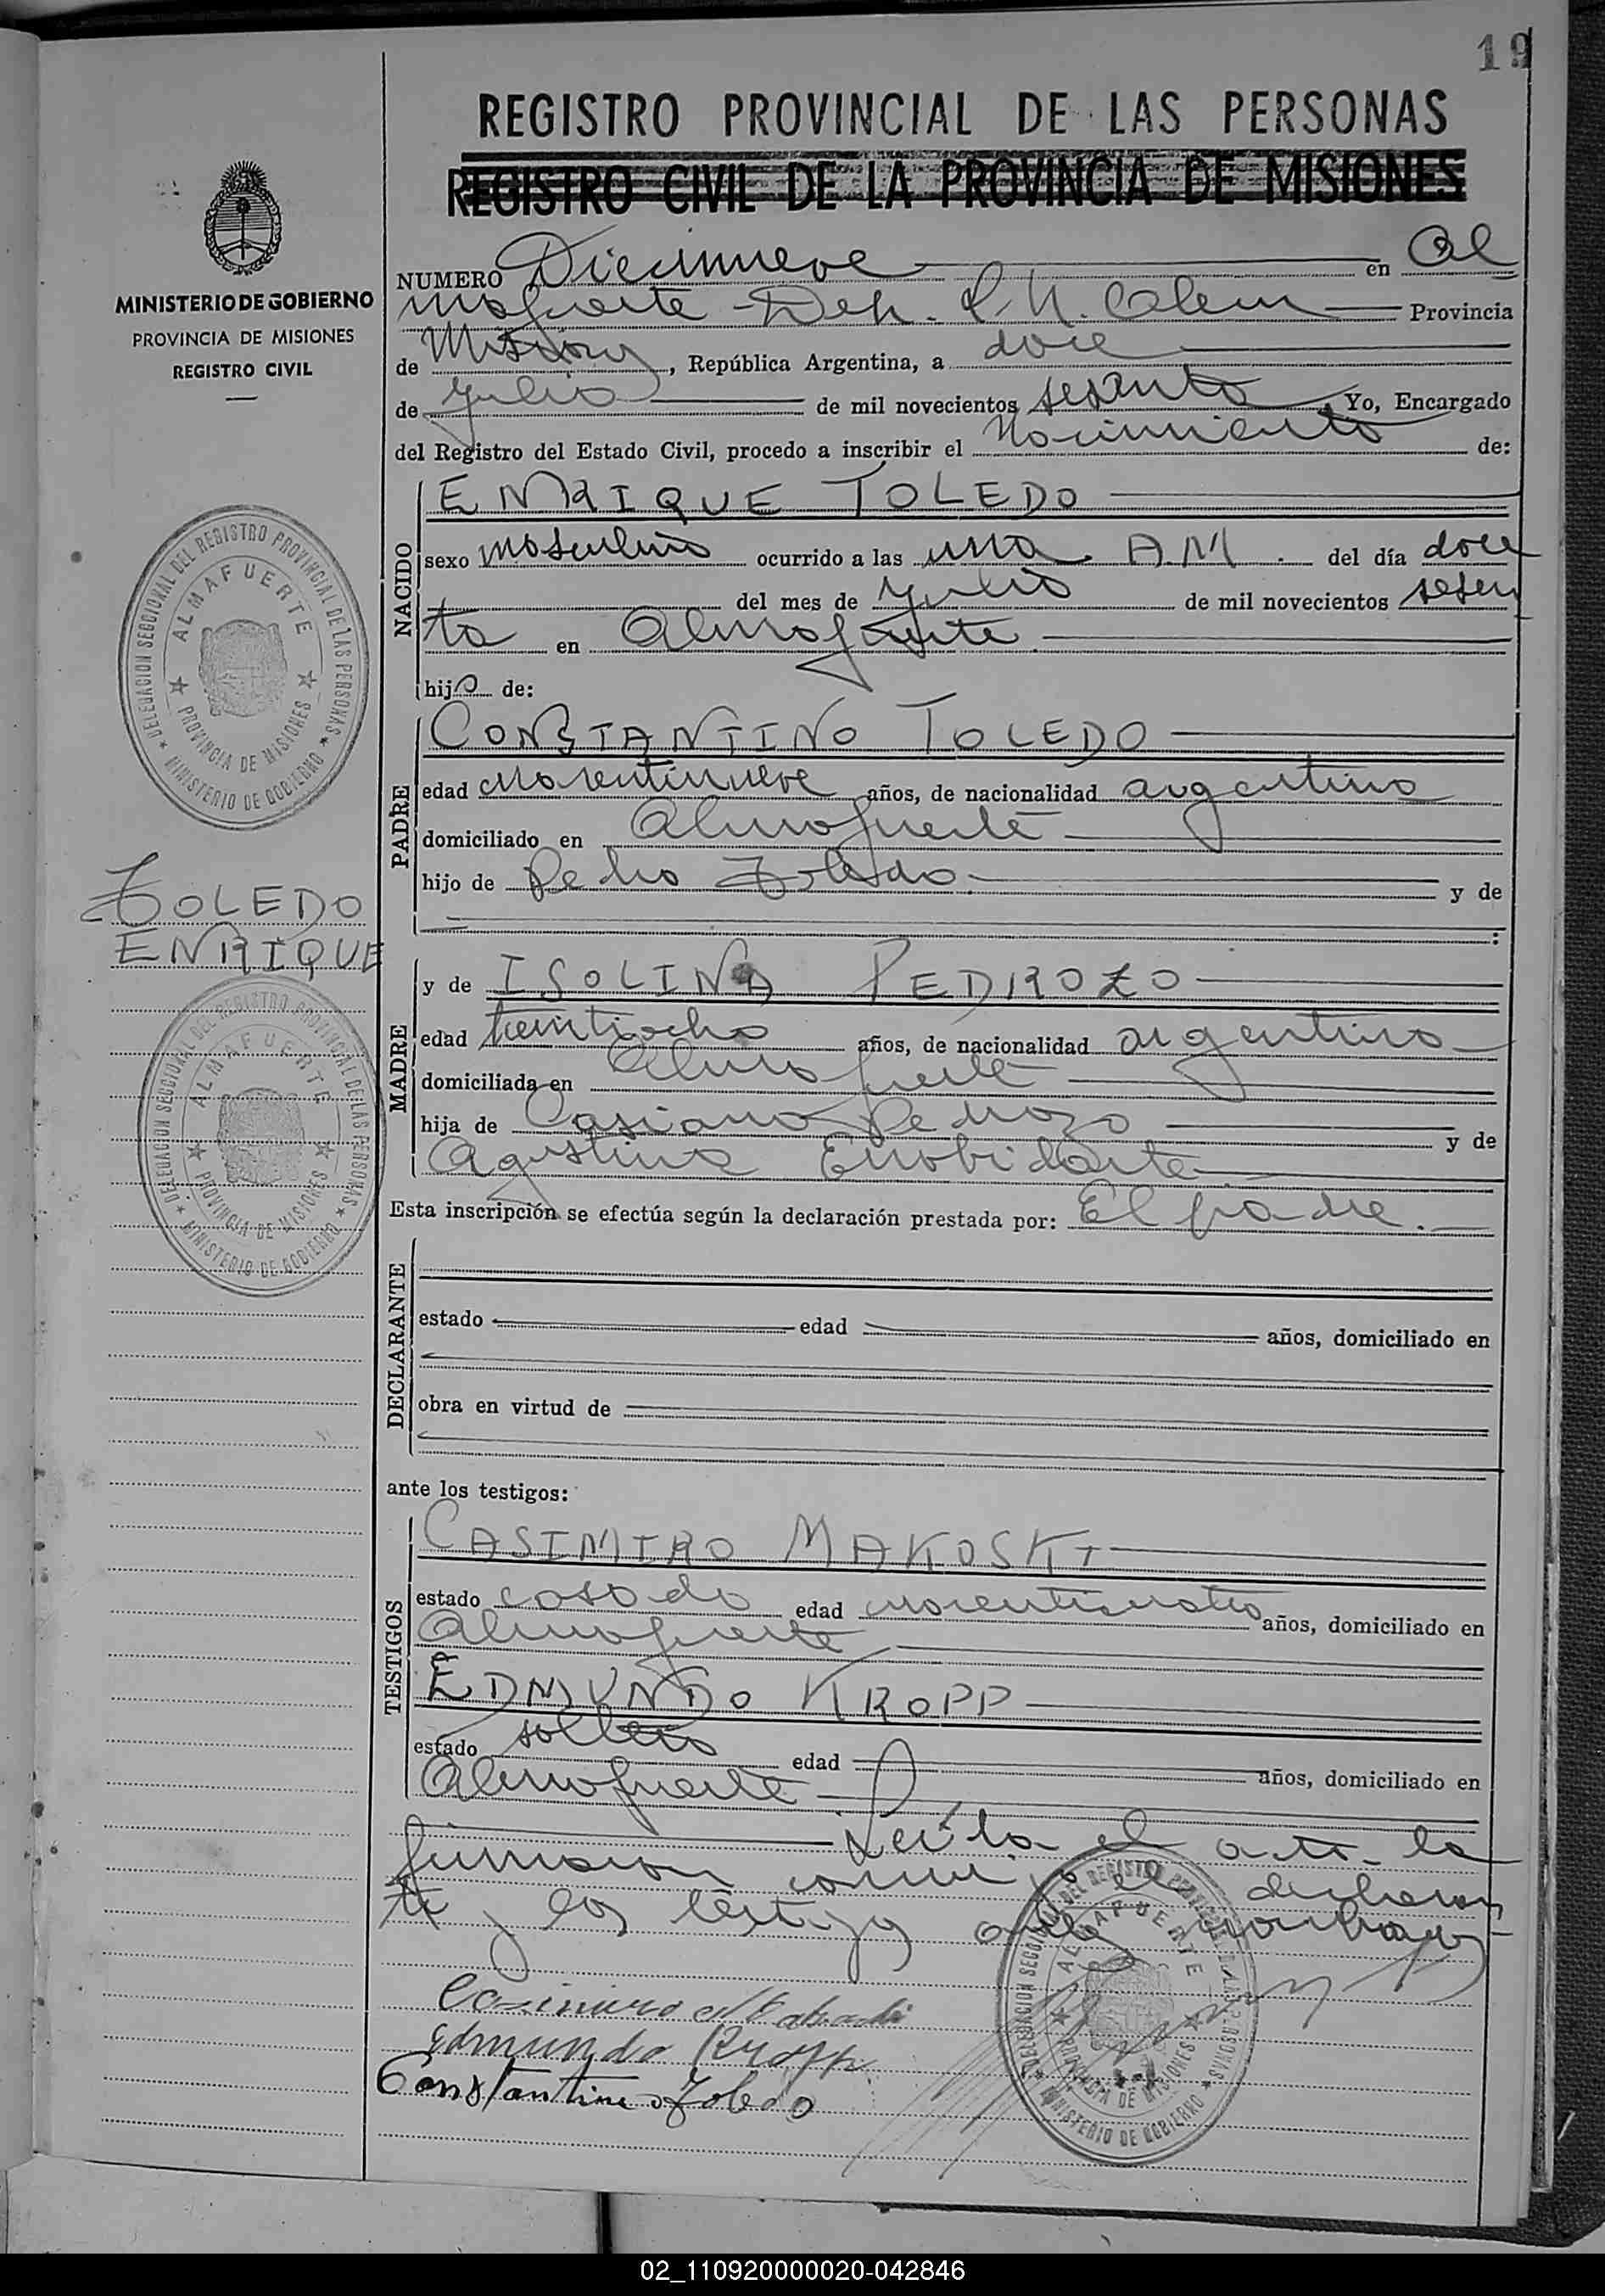 19
REGISTRO PROVINCIAL DE LAS PERSONAS
REGISTRO CIVIL DE LA PROVINCIA DE MISIONES
MINISTERIO DE GOBIERNO
PROVINCIA DE MISIONES
REGISTRO CIVIL
NUMERO Diecinueve en Al
mafuerte Dep. L. N. Alem Provincia
de Misiones, República Argentina, a doce
de julio de mil novecientos sesenta, Yo, Encargado
del Registro del Estado Civil, procedo a inscribir el Nacimiento de:
NACIDO
ENRIQUE TOLEDO
sexo masculino ocurrido a las una A.M. del día doce
del mes de julio de mil novecientos sesen
ta en Almafuerte
hijo de:
PADRE
CONSTANTINO TOLEDO
edad años, de nacionalidad argentino
domiciliado en Almafuerte
hijo de Pedro Toledo y de
TOLEDO
ENRIQUE
MADRE
y de ISOLINA PEDROZO
edad treintiocho años, de nacionalidad argentina
domiciliada en Almafuerte
hija de Casiano Pedrozo y de
Agustina
Esta inscripción se efectúa según la declaración prestada por: El padre.
DECLARANTE
estado edad años, domiciliado en
obra en virtud de
ante los testigos:
TESTIGOS
CASIMIRO MAKOSKI
estado casado edad años, domiciliado en
Almafuerte
EDMUNDO KROPP
estado soltero edad años, domiciliado en
Almafuerte
Leída el acta la
firmaron conmigo el declaran
te y los testigos
Casimiro
Edmundo Kropp
Constantino Toledo
DELEGACION SECCIONAL DEL REGISTRO PROVINCIAL DE LAS PERSONAS
ALMAFUERTE
PROVINCIA DE MISIONES
MINISTERIO DE GOBIERNO
DELEGACION SECCIONAL DEL REGISTRO PROVINCIAL DE LAS PERSONAS
ALMAFUERTE
PROVINCIA DE MISIONES
MINISTERIO DE GOBIERNO
DELEGACION SECCIONAL DEL REGISTRO PROVINCIAL DE LAS PERSONAS
ALMAFUERTE
PROVINCIA DE MISIONES
MINISTERIO DE GOBIERNO
02_110920000020-042846